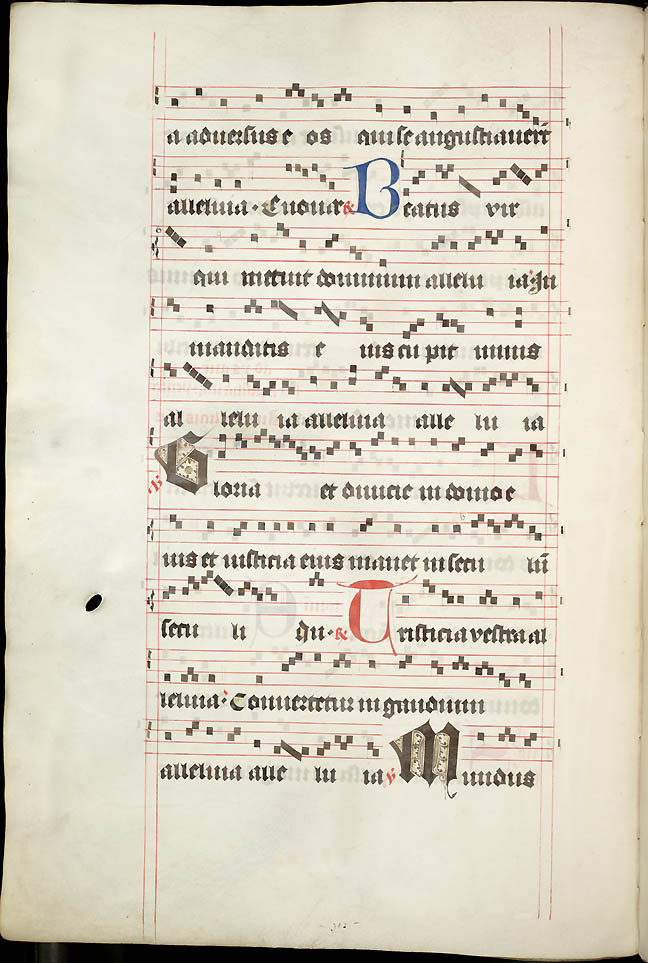 a adversus e os qui se angustiaverūt
alleluia · Euouae ℟ Beatus vir
qui metuit dominum allelu ia · In
mandatis e ius cupit nimis
al lelu ia alleluia alle lu ia
℣ Gloria et divicie in domo e
ius et iusticia eius manet in secu lū
secu li Qui · ℟ Tristicia vestra al
leluia · Convertetur in gaudium
alleluia alle lu ia ℣ Mundus